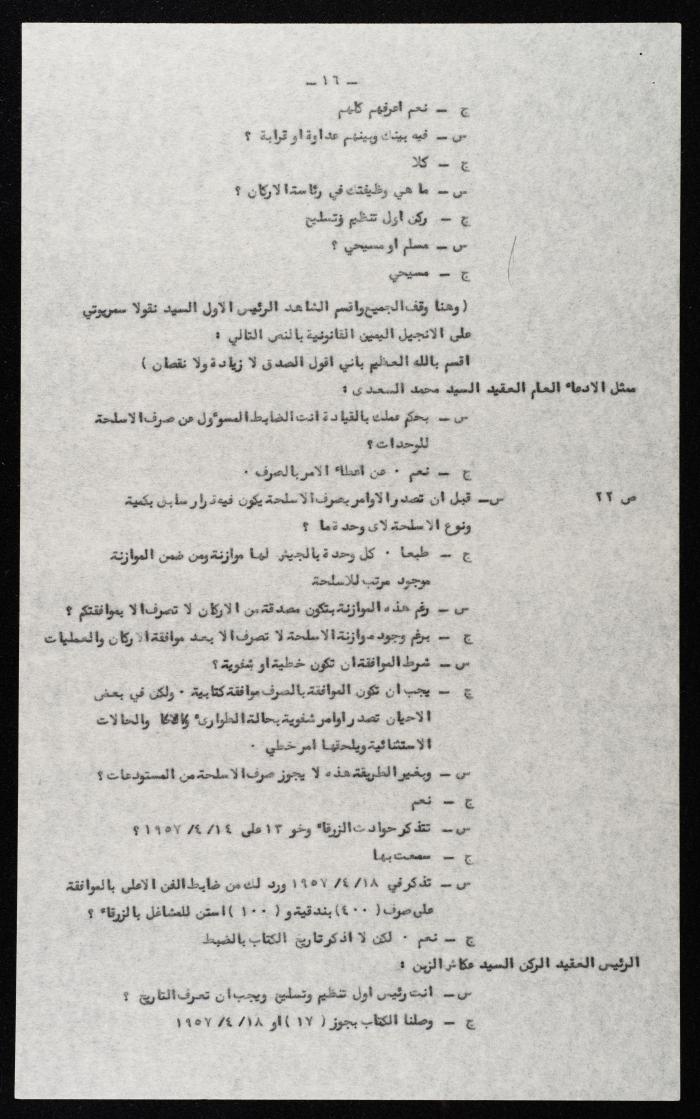 – ١٦ –
ج – نعم اعرفهم كلهم
س – فيه بينك وبينهم عداوة او قرابة ؟
ج – كلا
س – ما هي وظيفتك في رئاسة الاركان ؟
ج – ركن اول تنظيم وتسليح
س – مسلم او مسيحي ؟
ج – مسيحي
( وهنا وقف الجميع واقسم الشاهد الرئيس الاول السيد نقولا سمريوتي
على الانجيل اليمين القانونية بالنص التالي :
اقسم بالله العظيم باني اقول الصدق لا زيادة ولا نقصان )
ممثل الادعاء العام العقيد السيد محمد السعدى :
س – بحكم عملك بالقيادة انت الضابط المسوءول عن صرف الاسلحة
للوحدات ؟
ج – نعم ٠ عن اعطاء الامر بالصرف ٠
ص ٢٢ س – قبل ان تصدر الاوامر بصرف الاسلحة يكون فيه قرار سابق بكمية
ونوع الاسلحة لاى وحدة ما ؟
ج – طبعا ٠ كل وحدة بالجيش لها موازنة ومن ضمن الموازنة
موجود مرتب للاسلحة
س – رغم هذه الموازنة بتكون مصدقة من الاركان لا تصرف الا بموافقتكم ؟
ج – برغم وجود موازنة الاسلحة لا تصرف الا بعد موافقة الاركان والعمليات
س – شرط الموافقة ان تكون خطية او شفوية ؟
ج – يجب ان تكون الموافقة بالصرف موافقة كتابية ٠ ولكن في بعض
الاحيان تصدر اوامر شفوية بحالة الطوارىء والحالات
الاستثنائية ويلحقها امر خطي ٠
س – وبغير الطريقة هذه لا يجوز صرف الاسلحة من المستودعات ؟
ج – نعم
س – تتذكر حوادث الزرقاء وخو ١٣ على ١٤/ ٤/ ١٩٥٧ ؟
ج – سمعت بها
س – تذكر في ١٨/ ٤/ ١٩٥٧ ورد لك من ضابط الفن الاعلى بالموافقة
على صرف ( ٤٠٠ ) بندقية و ( ١٠٠ ) استن للمشاغل بالزرقاء ؟
ج – نعم ٠ لكن لا اذكر تاريخ الكتاب بالضبط
الرئيس العقيد الركن السيد عكاش الزبن :
س – انت رئيس اول تنظيم وتسليح ويجب ان تعرف التاريخ ؟
ج – وصلنا الكتاب بجوز ( ١٧ ) او ١٨/ ٤/ ١٩٥٧